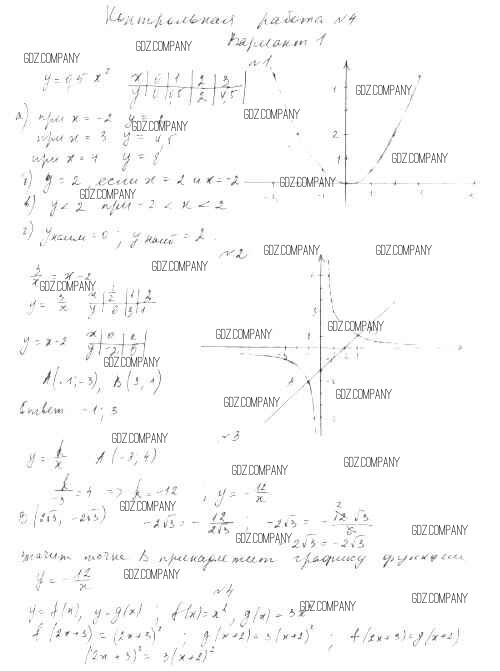 Контрольная работа №4
Вариант 1
GDZ.COMPANY
GDZ.COMPANY
№1
y=0,5 x² x 0 1 2 3
y 0 0,5 2 4,5
GDZ.COMPANY
а) при x = -2 y =
GDZ.COMPANY
при x = 3 y = 4,5
при x = 4 y = 8
GDZ.COMPANY
б) y = 2, если x = 2 и x = -2
GDZ.COMPANY
GDZ.COMPANY
в) y < 2 при -2 < x < 2
г) y наим = 0; y наиб = 2.
№2
GDZ.COMPANY
GDZ.COMPANY
GDZ.COMPANY
3/x = x - 2
GDZ.COMPANY
y = 3/x x 1/2 1 2
y 6 3
GDZ.COMPANY
GDZ.COMPANY
y = x-2 x 0 2
y -2 0
GDZ.COMPANY
A(-1;-3), B(3,1)
GDZ.COMPANY
Ответ -1; 3
GDZ.COMPANY
№3
y = k/x A(-3,4)
GDZ.COMPANY
GDZ.COMPANY
k/-3 = 4 => k = -12 ; y = -12/x
GDZ.COMPANY
B(2√3, -2√3) -2√3 = -12/2√3 ; -2√3 =
GDZ.COMPANY
GDZ.COMPANY
-2√3 = -2√3
значит точка B принадлежит графику функции
y = -12/x
GDZ.COMPANY
№4
GDZ.COMPANY
GDZ.COMPANY
y = f(x), y = g(x) ; f(x) = x², g(x) = 3x²
GDZ.COMPANY
f(2x+3) = (2x+3)² ; g(x+2) = 3(x+2)² ; f(2x+3) = g(x+2)
(2x+3)² = 3(x+2)²